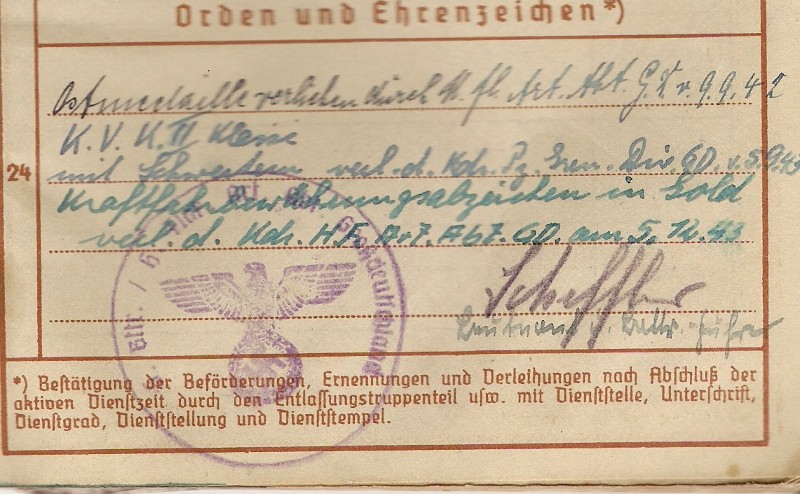 Orden und Ehrenzeichen*)
Ostmedaille verliehen durch H. fl. Art. Abt. G.D. v. 9.9.42
K.V.K. II Klasse
24
mit Schwertern verl. d. Kdr. Pz. Gren. Div. GD. v. 5.9.43
Kraftfahrbewährungsabzeichen in Gold
verl. d. Kdr. H.F. Art. Abt. GD. am 5.12.43
Scheffler
Leutnant u. Battr. Führer
Großdeutschland
*) Bestätigung der Beförderungen, Ernennungen und Verleihungen nach Abschluß der
aktiven Dienstzeit durch den Entlassungstruppenteil usw. mit Dienststelle, Unterschrift,
Dienstgrad, Dienststellung und Dienststempel.